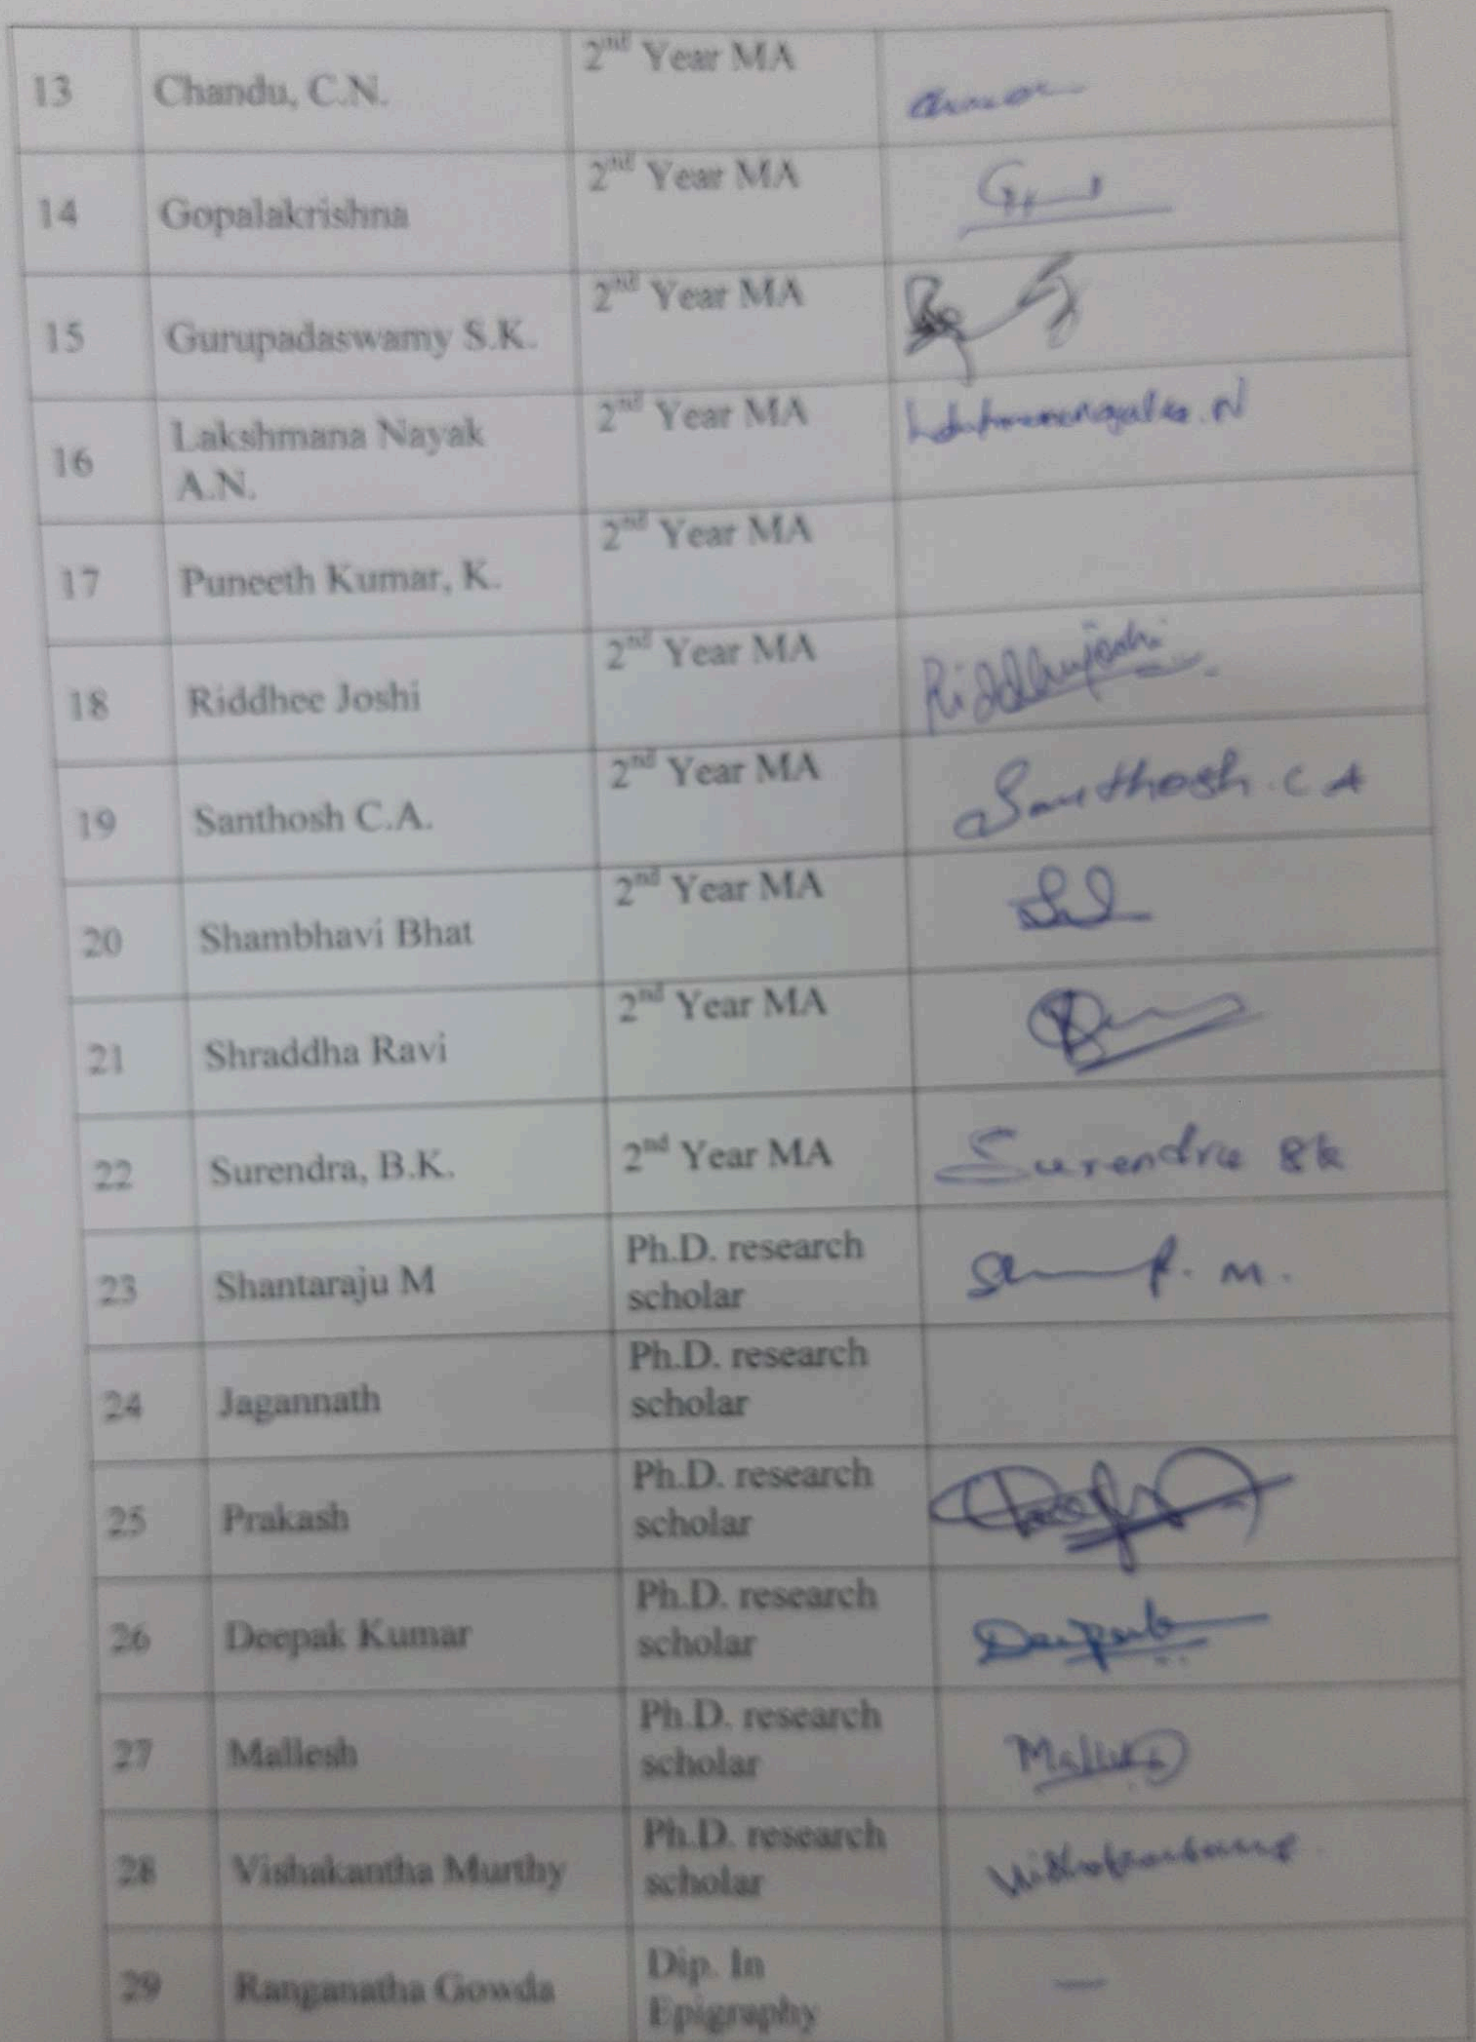 13 Chandu, C.N. 2nd Year MA
14 Gopalakrishna 2nd Year MA
15 Gurupadaswamy S.K. 2nd Year MA
16 Lakshmana Nayak 2nd Year MA
A.N.
17 Puneeth Kumar, K. 2nd Year MA
18 Riddhee Joshi 2nd Year MA
19 Santhosh C.A. 2nd Year MA Santhosh. C A
20 Shambhavi Bhat 2nd Year MA
21 Shraddha Ravi 2nd Year MA
22 Surendra, B.K. 2nd Year MA Surendra BK
23 Shantaraju M Ph.D. research
scholar
24 Jagannath Ph.D. research
scholar
25 Prakash Ph.D. research
scholar
26 Deepak Kumar Ph.D. research
scholar Deepak
27 Mallesh Ph.D. research
scholar
28 Vishakantha Murthy Ph.D. research
scholar
29 Ranganatha Gowda Dip. In
Epigraphy —